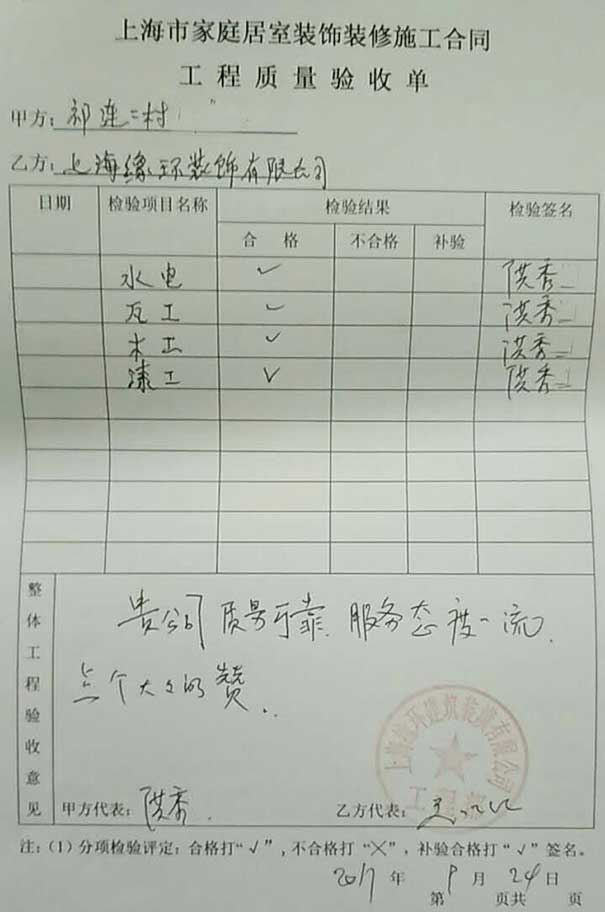 上海市家庭居室装饰装修施工合同
工程质量验收单
甲方：祁连二村
乙方：上海缘环装饰有限公司
日期 检验项目名称 检验结果 检验签名
合格 不合格 补验
水电 ✓ 洪秀
瓦工 ✓ 洪秀
木工 ✓ 洪秀
漆工 ✓ 洪秀
整体工程验收意见
贵公司质量可靠.服务态度一流.
点个大大的赞..
上海缘环建筑装潢有限公司
甲方代表：洪秀.
乙方代表：
注：（1）分项检验评定：合格打“√”，不合格打“×”，补验合格打“√”签名。
2017年9月24日
第 页共 页